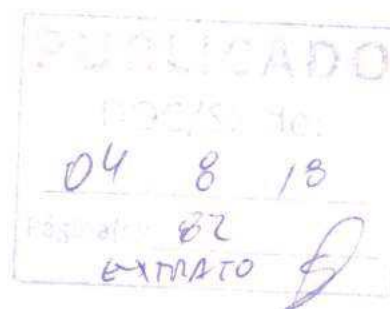 PUBLICADO
DOC/SP de:
04 8 18
Página(s) 82
EXTRATO